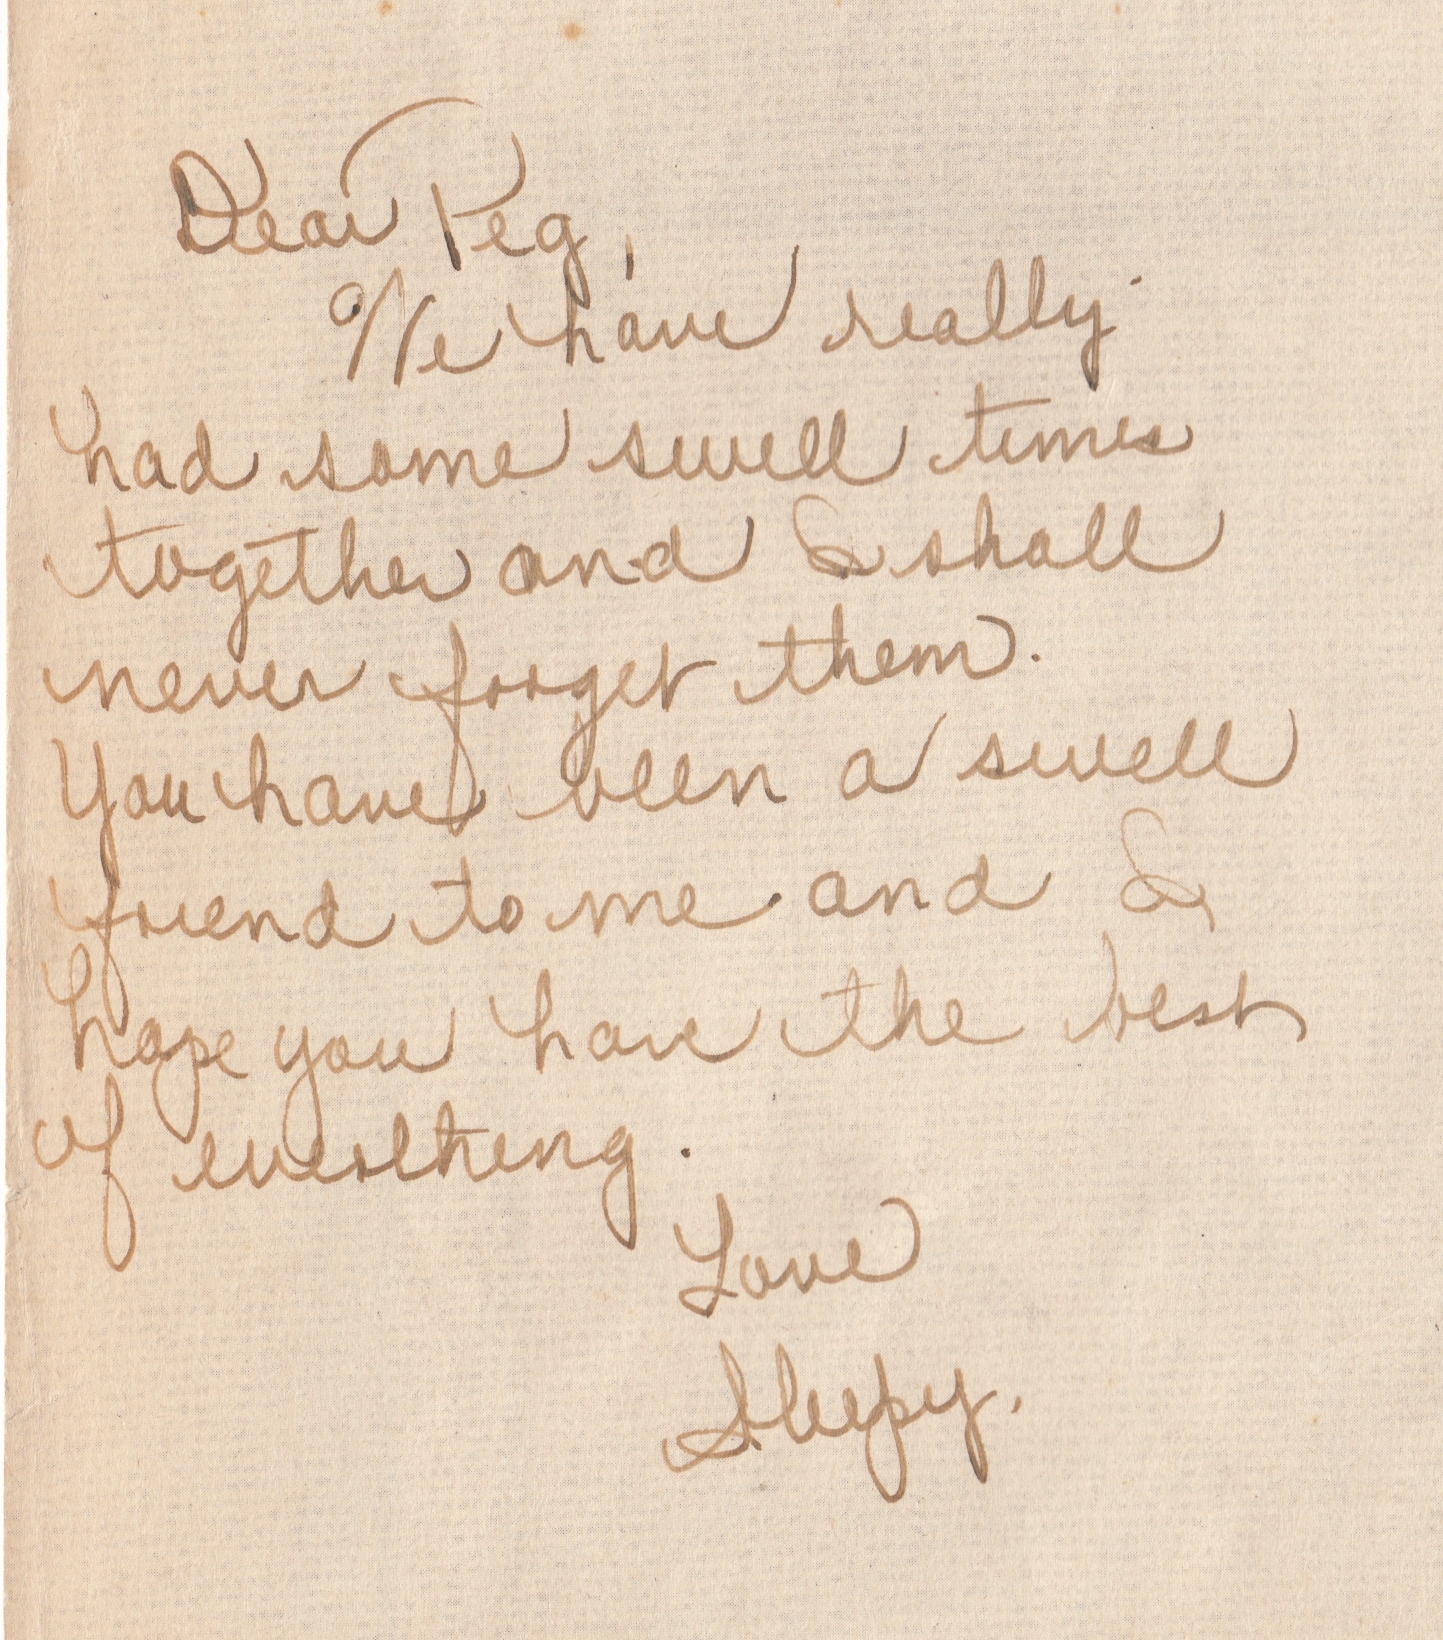 Dear Peg,
We have really
had some swell times
together and I shall
never forget them.
You have been a swell
friend to me and I
hope you have the best
of everything.
Love
Sleepy.